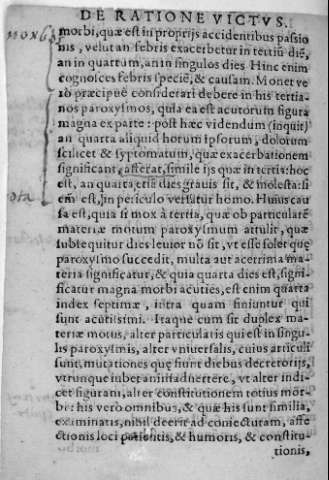 DE RATIONE VICTVS.
morbi, quæ est in proprijs accidentibus passio
nis, velut an febris exacerbetur in tertiũ diẽ,
an in quartum, an in singulos dies Hinc enim
cognosces febris speciẽ, & causam. Monet ve
rò præcipuè considerari debere in his tertia-
nos paroxysmos, quia ea est acutorum figura
magna ex parte: post hæc videndum (inquit)
an quarta aliquid horum ipsorum, dolorum
scilicet & syptomatum, quæ exacerbationem
significant, afferat, simile ijs quæ in tertia: hoc
est, an quarta etiã dies grauis sit, & molesta: si
em̃ est, in periculo versatur homo. Huius cau
sa est, quia si mox à tertia, quæ ob particularẽ
materiæ motum paroxysmum attulit, quæ
subsequitur dies leuior nõ sit, vt esse solet quẽ
paroxysmo succedit, multa aut acerrima ma-
teria significatur, & quia quarta dies est, signi-
ficatur magna morbi acuties, est enim quarta
index septimæ, intra quam finiuntur qui
sunt acutissimi. Itaque cum sit duplex ma-
teriæ motus, alter particularis qui est in singu-
lis paroxysmis, alter vniuersalis, cuius articuli
sunt mutationes quę fiunt diebus decretorijs,
vtrunque iubet aniṁaduertere, vt alter indi-
cet figuram, alter constitutionem totius mor-
bi: his verò omnibus, & quæ his sunt similia,
examinatis, nihil deerit ad coniecturam, affe
ctionis loci patientis, & humoris, & constitu-
tionis,